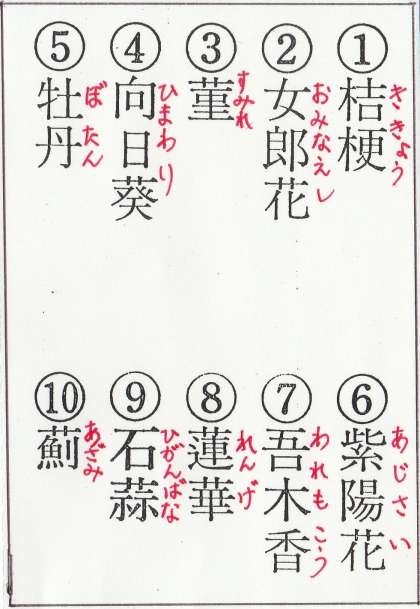 ①桔梗
ききょう
②女郎花
おみなえし
③菫
すみれ
④向日葵
ひまわり
⑤牡丹
ぼたん
⑥紫陽花
あじさい
⑦吾木香
われもこう
⑧蓮華
れんげ
⑨石蒜
ひがんばな
⑩薊
あざみ